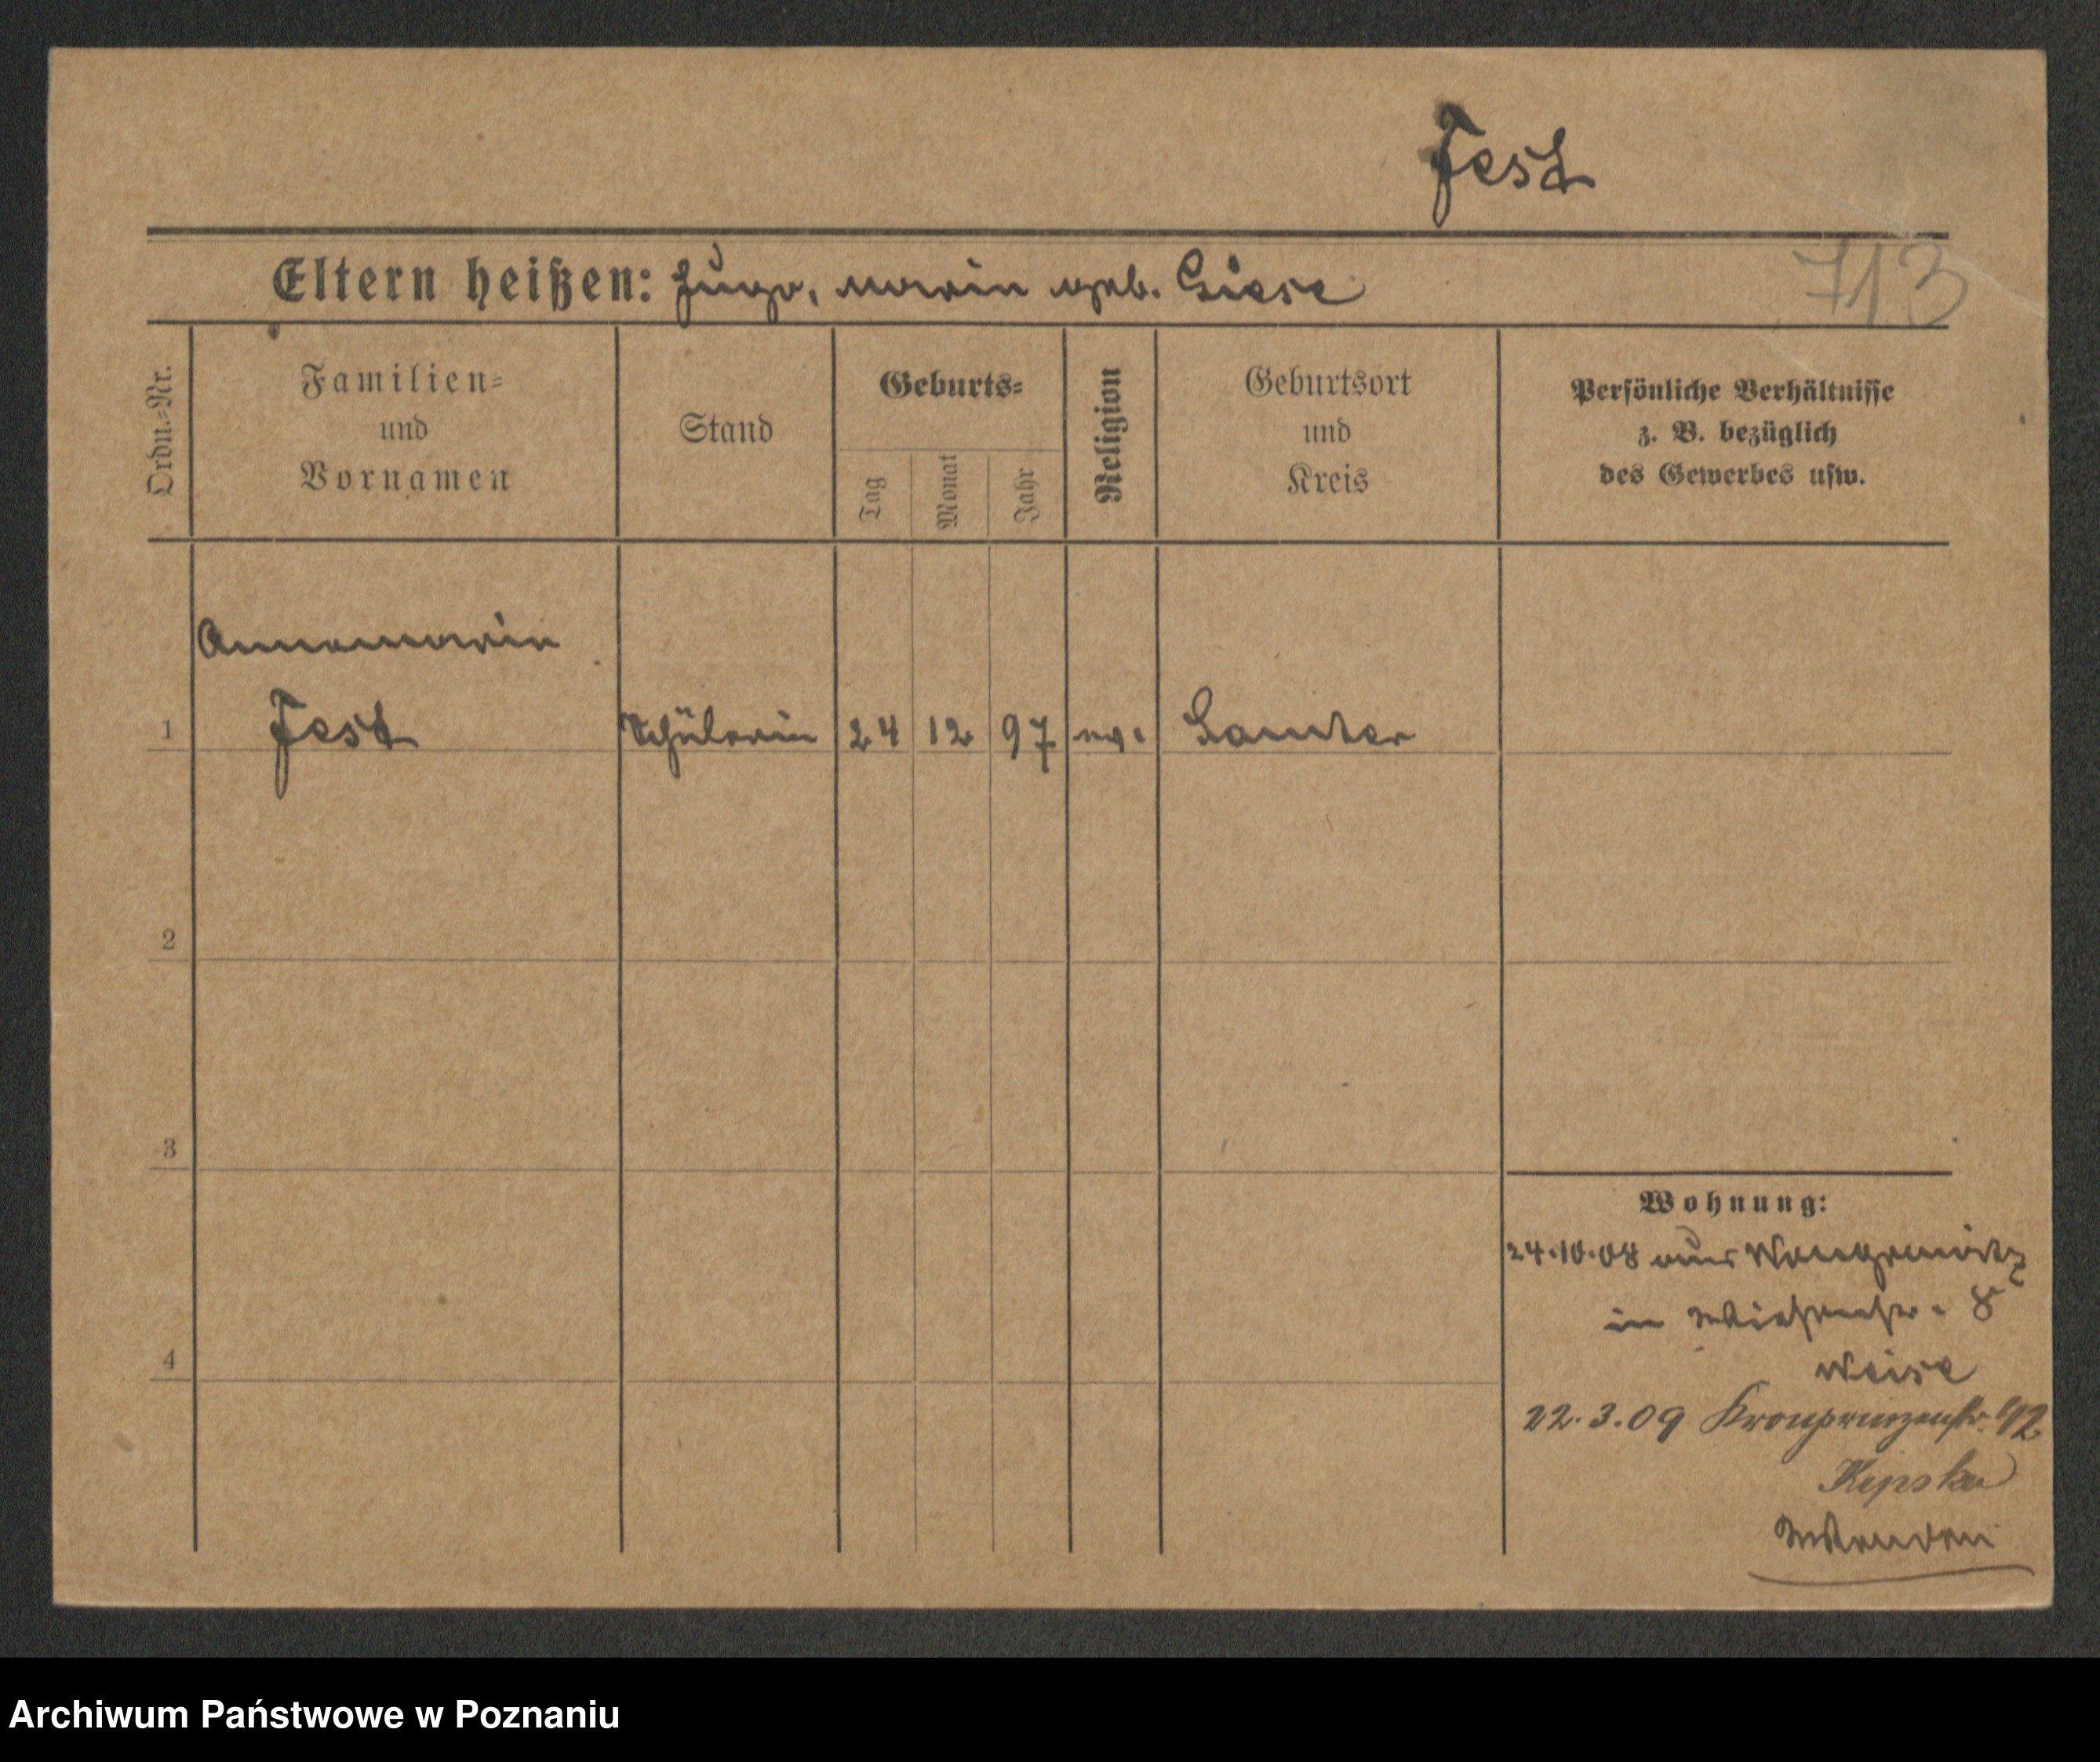 Fest
Eltern heißen: Hugo, Marie geb. Giese
713
Ordn.=Nr.
Familien=
und
Vornamen
Stand
Geburts=
Tag
Monat
Jahr
Religion
Geburtsort
und
Kreis
Persönliche Verhältnisse
z. B. bezüglich
des Gewerbes usw.
Annemarie
1 Fest Schülerin 24 12 97 ev. Samter
2
3
4
Wohnung:
24.10.08 aus Wongrowitz
in Wiesenstr. 8
Weise
22.3.09 Kronprinzenstr.
Archiwum Państwowe w Poznaniu